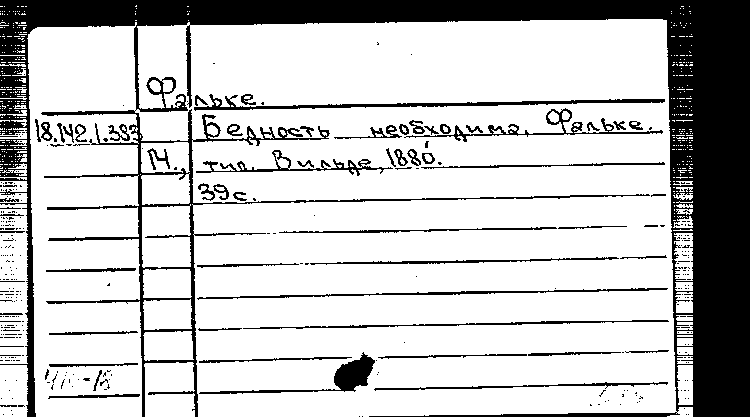 Фальке.
18.142.1.383 Бедность необходима. Фальке.
М., тип. Вильде, 1880.
39 с.